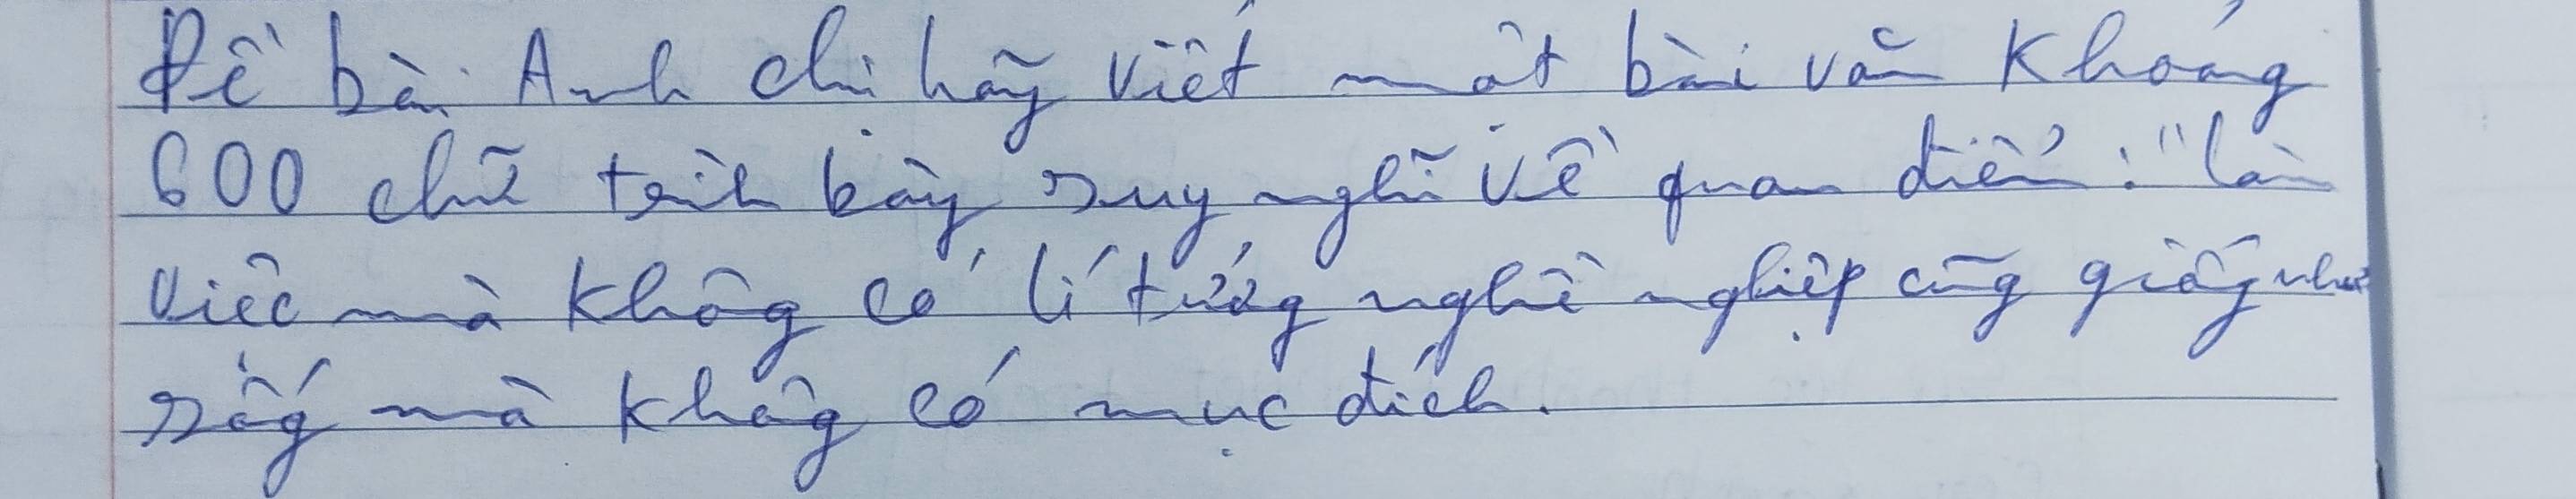 Đề bài: Anh chị hãy viết một bài văn khoảng
600 chữ trình bày suy nghĩ về quan điểm: "làm
việc mà không có lí tưởng nghề nghiệp cũng giống như
sống mà không có mục đích.